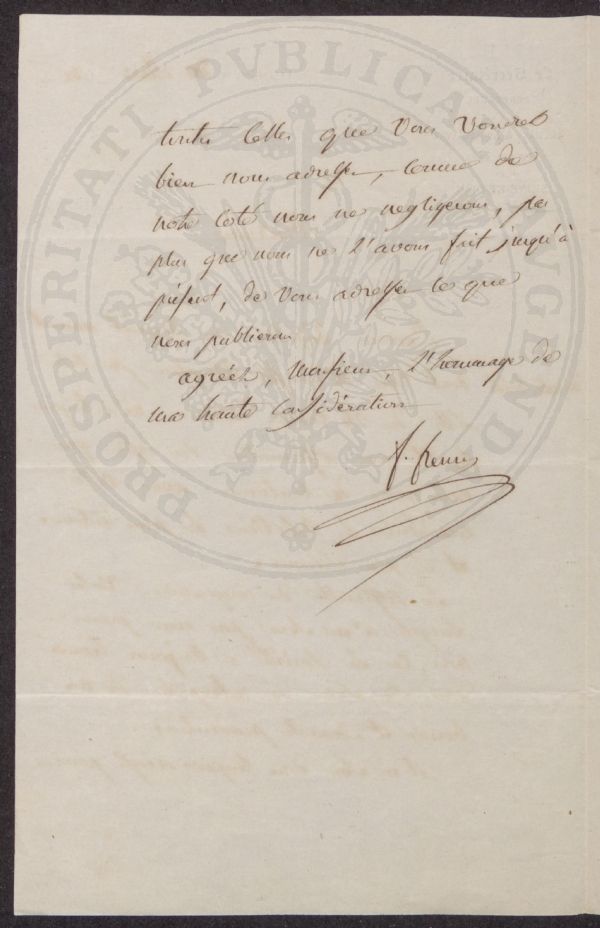 toutes celles que vous voudrez
bien nous adresser, comme de
notre coté nous ne negligerons, pas
plus que nous ne l'avons fait jusqu'à
présent, de vous adresser ce que
nous publierons
agréez, Monsieur, l'hommage de
ma haute considération
PROSPERITATI PVBLICAE AVGENDAE